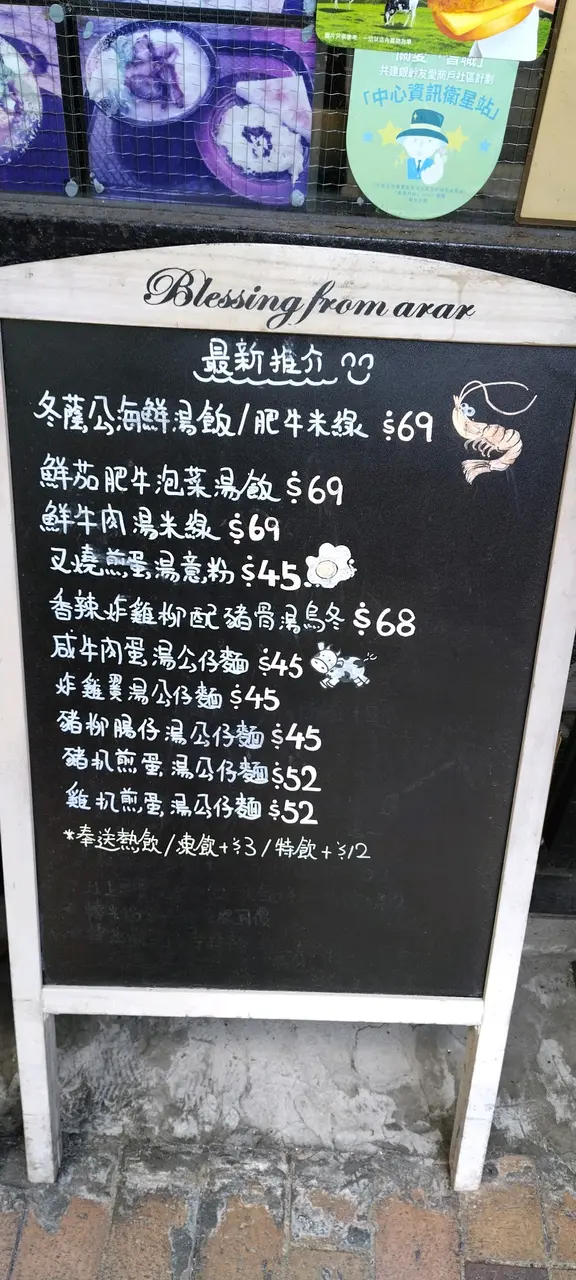 共建銀齡友愛商戶社區計劃
「中心資訊衛星站」
Blessing from arar
最新推介
冬蔭公海鮮湯飯/肥牛米線 $69
鮮茄肥牛泡菜湯飯 $69
鮮牛肉湯米線 $69
叉燒煎蛋湯意粉 $45
香辣炸雞柳配豬骨湯烏冬 $68
咸牛肉蛋湯公仔麵 $45
炸雞翼湯公仔麵 $45
豬柳腸仔湯公仔麵 $45
豬扒煎蛋湯公仔麵 $52
雞扒煎蛋湯公仔麵 $52
*奉送熱飲/凍飲+$3/特飲+$12